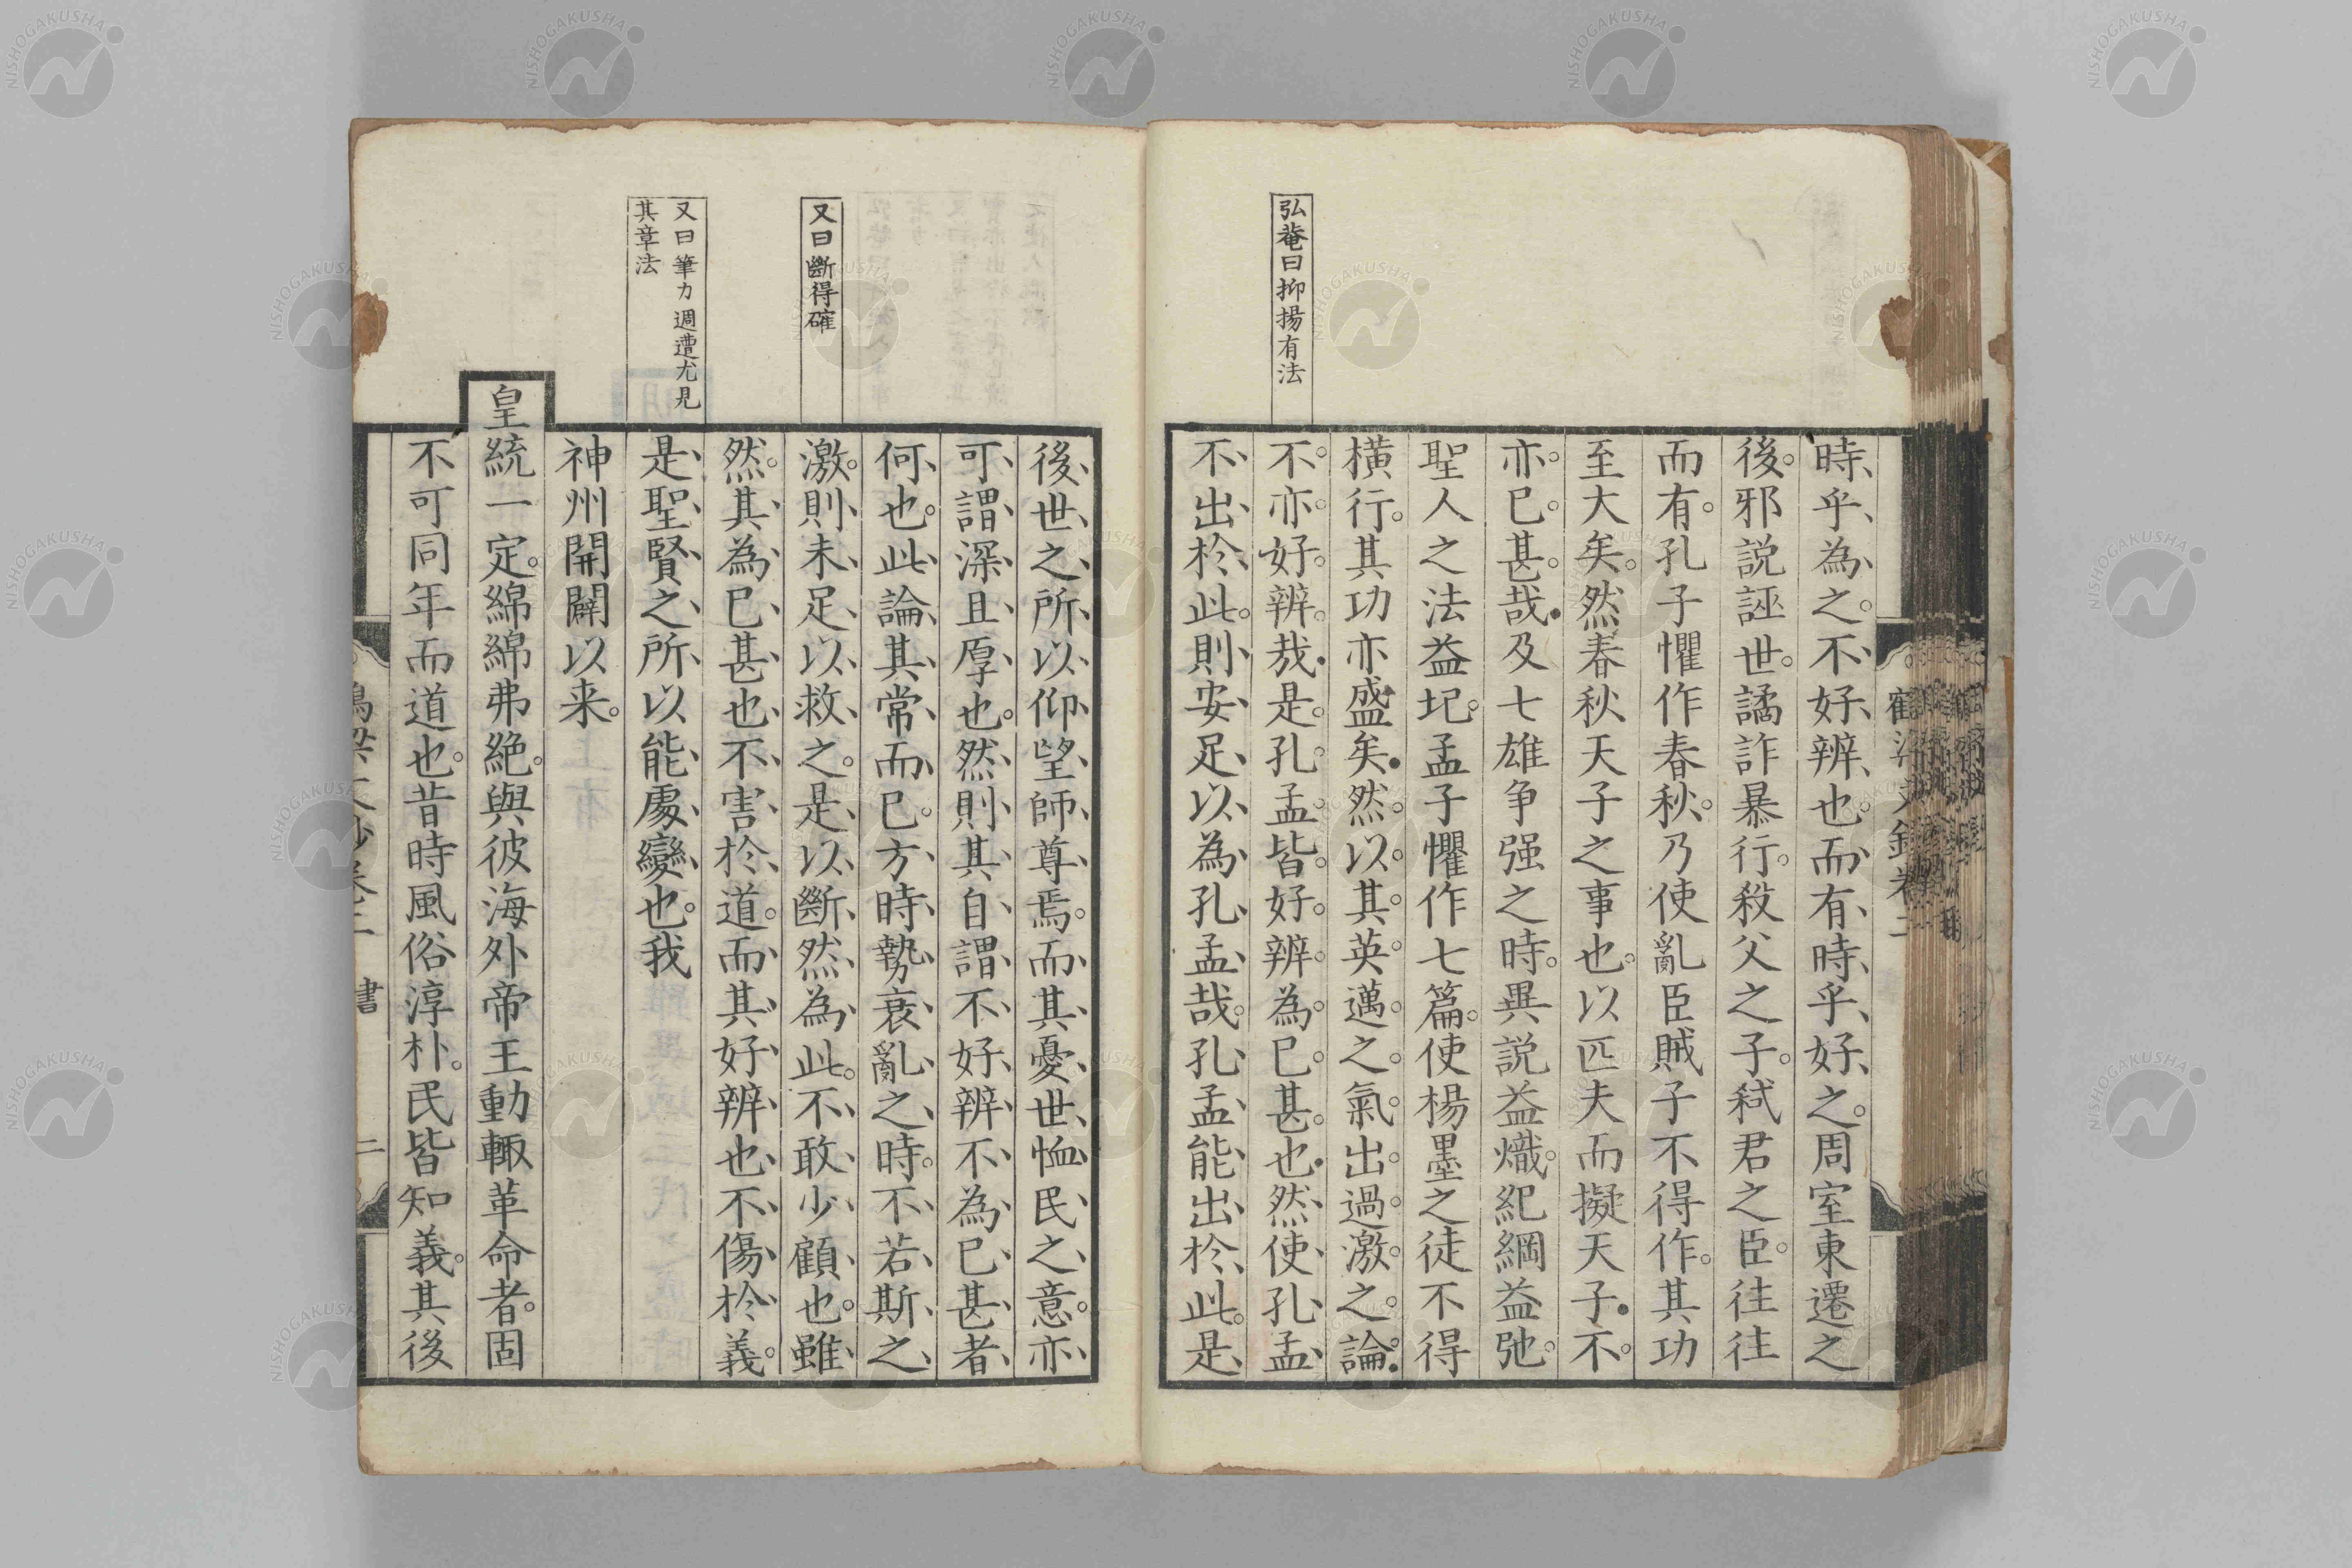 弘菴曰抑揚有法
時乎為之不好辨也而有時乎好之周室東遷之
後邪説誣世譎詐暴行殺父之子弑君之臣往往
而有孔子懼作春秋乃使亂臣賊子不得作其功
至大矣然春秋天子之事也以匹夫而擬天子不
亦已甚哉及七雄争强之時異説益熾紀綱益弛
聖人之法益圮孟子懼作七篇使楊墨之徒不得
横行其功亦盛矣然以其英邁之氣出過激之論
不亦好辨哉是孔孟皆好辨為已甚也然使孔孟
不出於此則安足以為孔孟哉孔孟能出於此是
又曰斷得確
又曰筆力週遭尤見
其章法
後世之所以仰望師尊焉而其憂世恤民之意亦
可謂深且厚也然則其自謂不好辨不為已甚者
何也此論其常而已方時勢衰亂之時不若斯之
激則未足以救之是以斷然為此不敢少顧也雖
然其為已甚也不害於道而其好辨也不傷於義
是聖賢之所以能處變也我
神州開闢以来
皇統一定綿綿弗絶與彼海外帝王動輒革命者固
不可同年而道也昔時風俗淳朴民皆知義其後
書
二
NISHOGAKUSHA